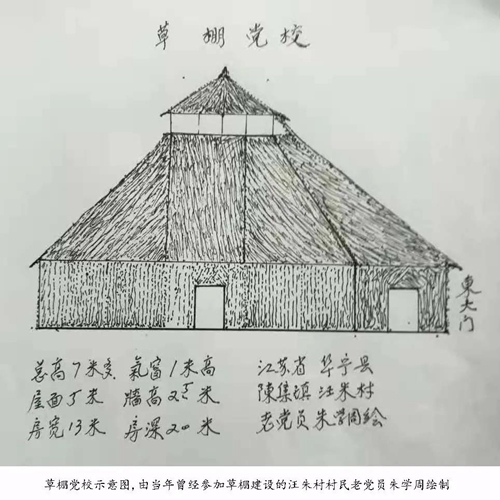 草棚党校
東大门
总高7米多 氣窗1米高 江苏省 阜宁县
屋面5米 牆高2.5米 陳集镇 汪朱村
房宽13米 房深20米 老党员朱学周绘
草棚党校示意图,由当年曾经参加草棚建设的汪朱村村民老党员朱学周绘制